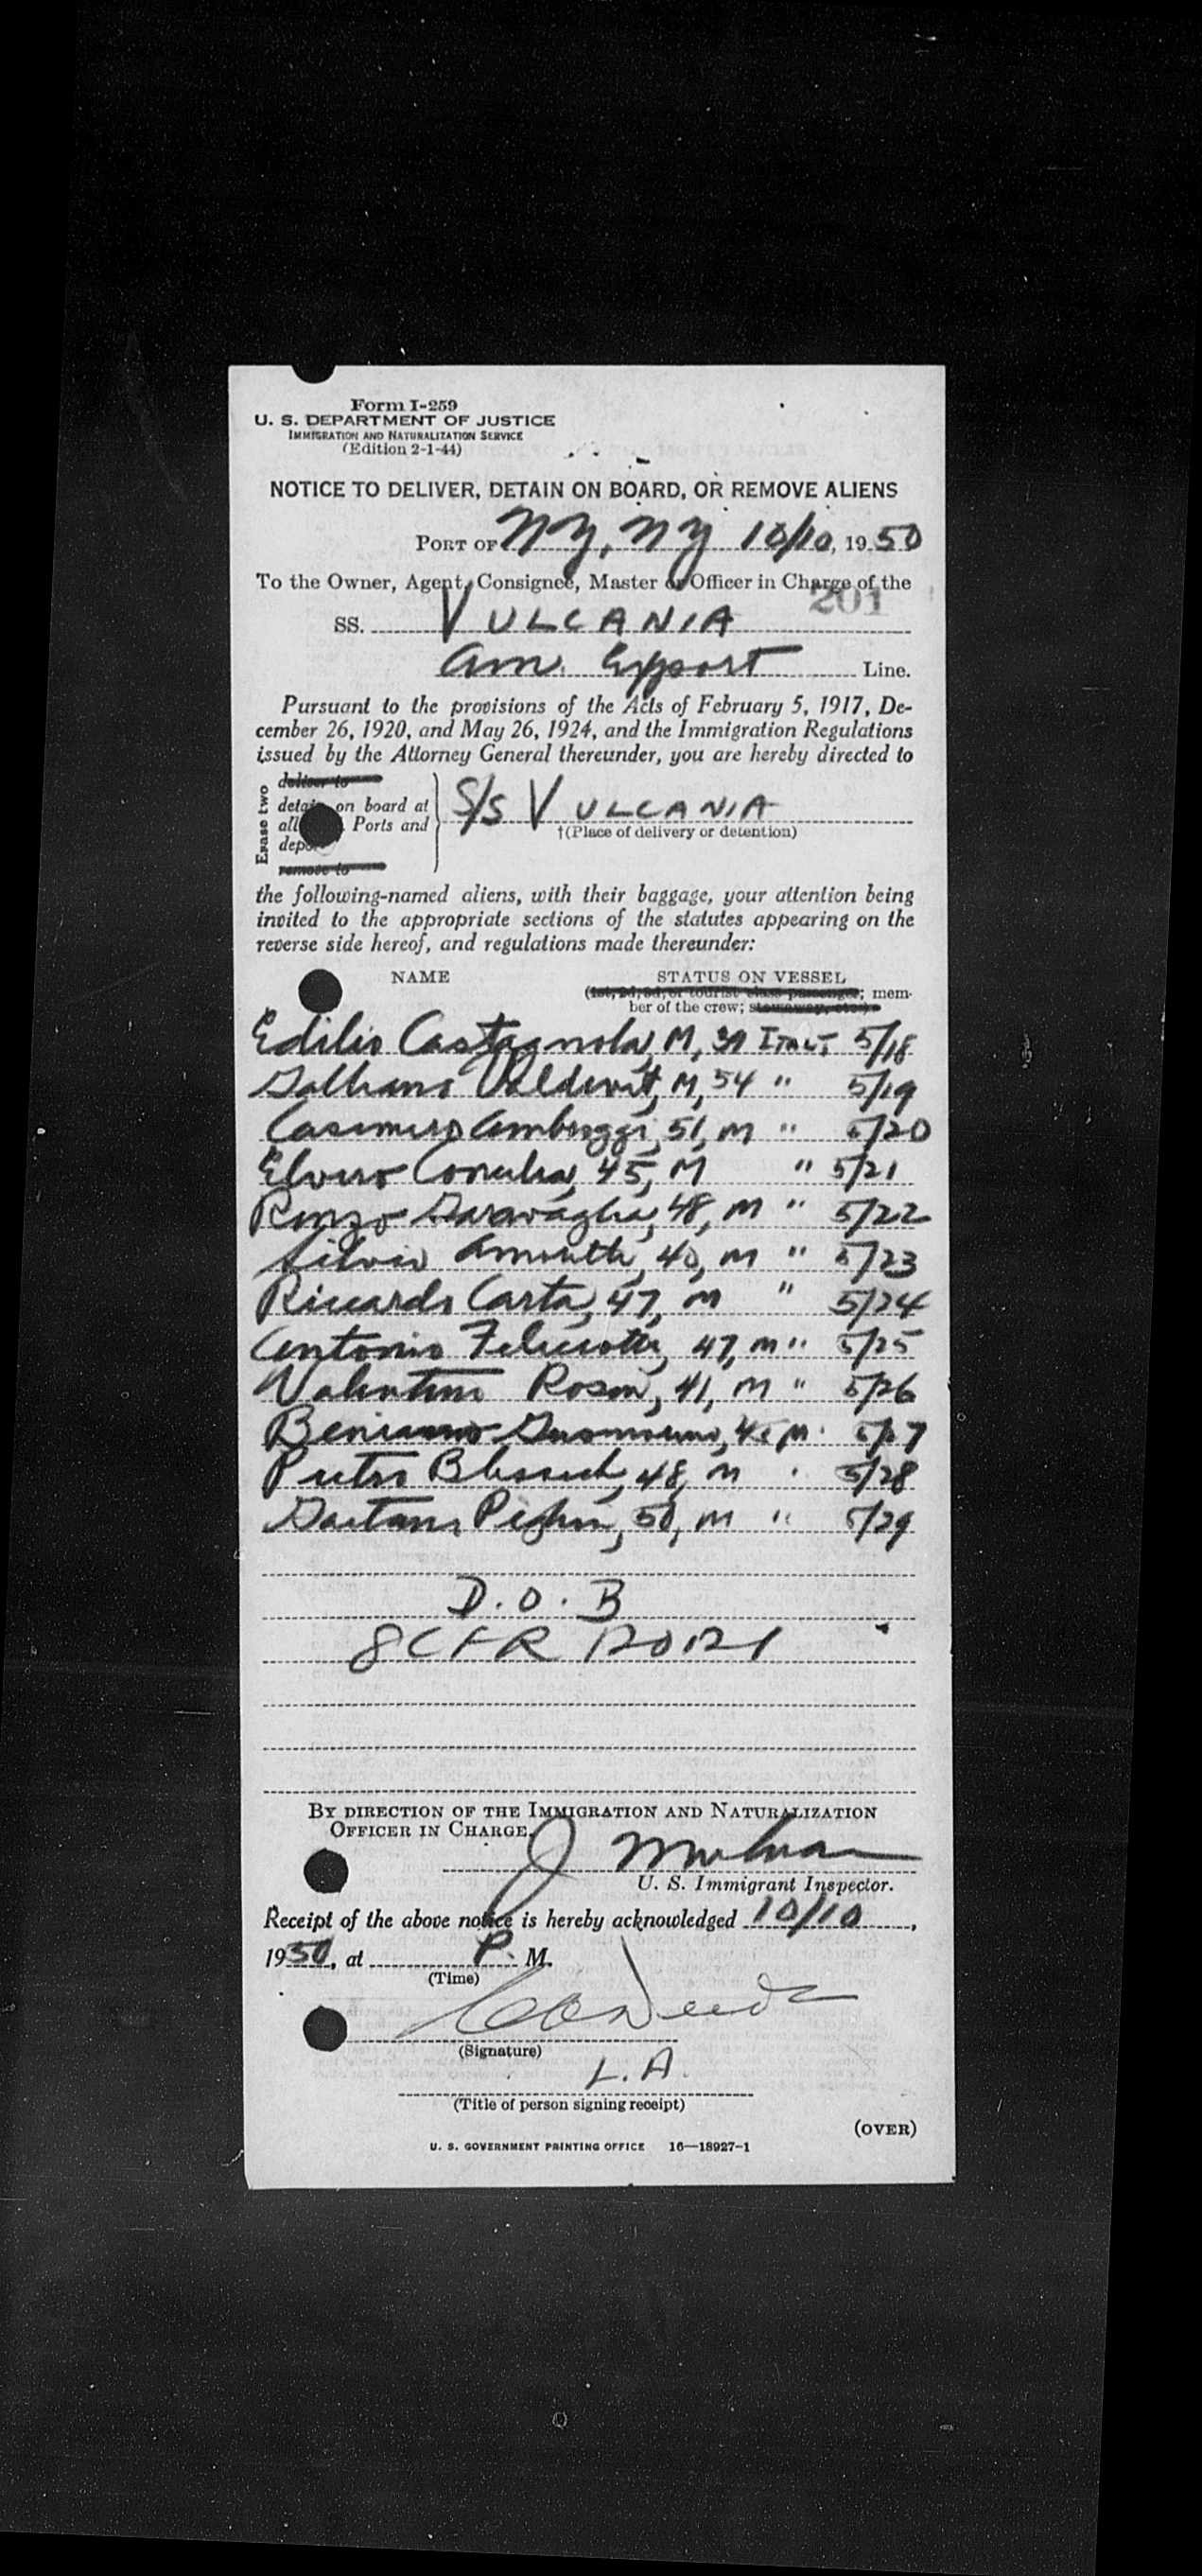 Form I-259
U. S. DEPARTMENT OF JUSTICE
IMMIGRATION AND NATURALIZATION SERVICE
(Edition 2-1-44)
NOTICE TO DELIVER, DETAIN ON BOARD, OR REMOVE ALIENS
PORT OF NY, NY 10/10, 1950
To the Owner, Agent, Consignee, Master or Officer in Charge of the
201
SS. VULCANIA
Am. Export Line.
Pursuant to the provisions of the Acts of February 5, 1917, De-
cember 26, 1920, and May 26, 1924, and the Immigration Regulations
issued by the Attorney General thereunder, you are hereby directed to
Erase two
deliver to
detain on board at
all Ports and
S/S VULCANIA
†(Place of delivery or detention)
remove to
the following-named aliens, with their baggage, your attention being
invited to the appropriate sections of the statutes appearing on the
reverse side hereof, and regulations made thereunder:
NAME STATUS ON VESSEL
(1st, 2d, 3d, or tourist class passenger; mem-
ber of the crew; stowaway, etc.)
Edilio Castagnola, M, 5/18
M, 54 " 5/19
Casimiro 51, M " 5/20
Elviro 45, M " 5/21
Renzo Garavaglia, 48, M " 5/22
Silvio 40, M " 5/23
Riccardo Carta, 47, M " 5/24
Antonio Feliciotti, 47, M " 5/25
Valentino 41, M " 5/26
Beniamino
Pietro 48, M 5/28
Gaetano 50, M " 5/29
D.O.B
8 CFR
BY DIRECTION OF THE IMMIGRATION AND NATURALIZATION
OFFICER IN CHARGE.
J
U. S. Immigrant Inspector.
Receipt of the above notice is hereby acknowledged 10/10,
1950, at P. M.
(Time)
(Signature)
L.A.
(Title of person signing receipt)
(OVER)
U. S. GOVERNMENT PRINTING OFFICE 16—18927-1